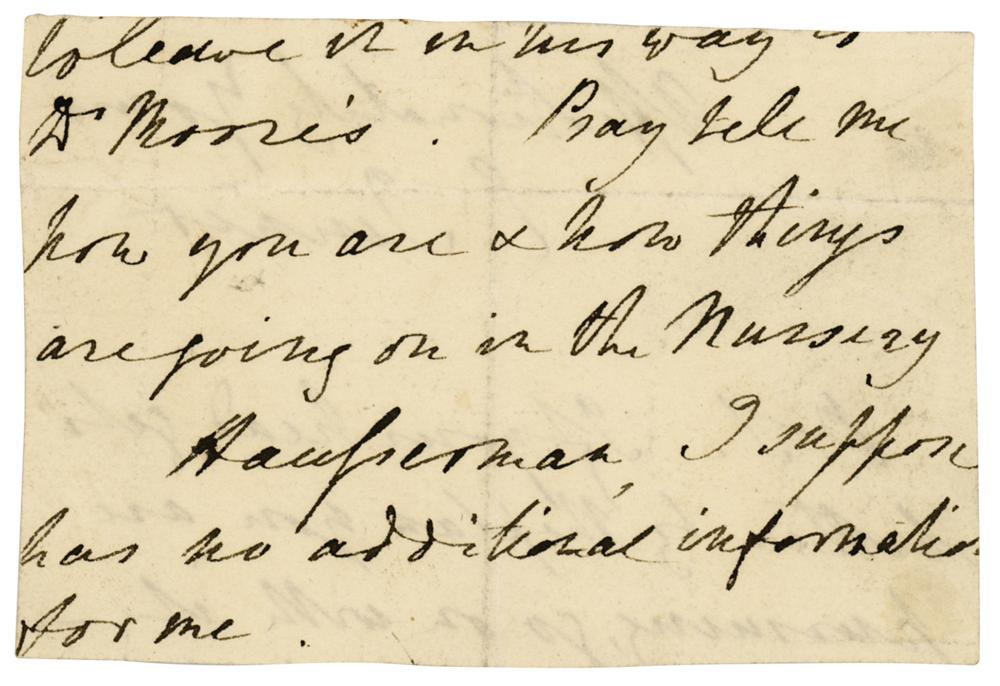 to leave it in his way to
Dr Moore's. Pray tele me
how you are & how things
are going on in the Nursery
Hausserman, I suppose
has no additional informatio
for me.